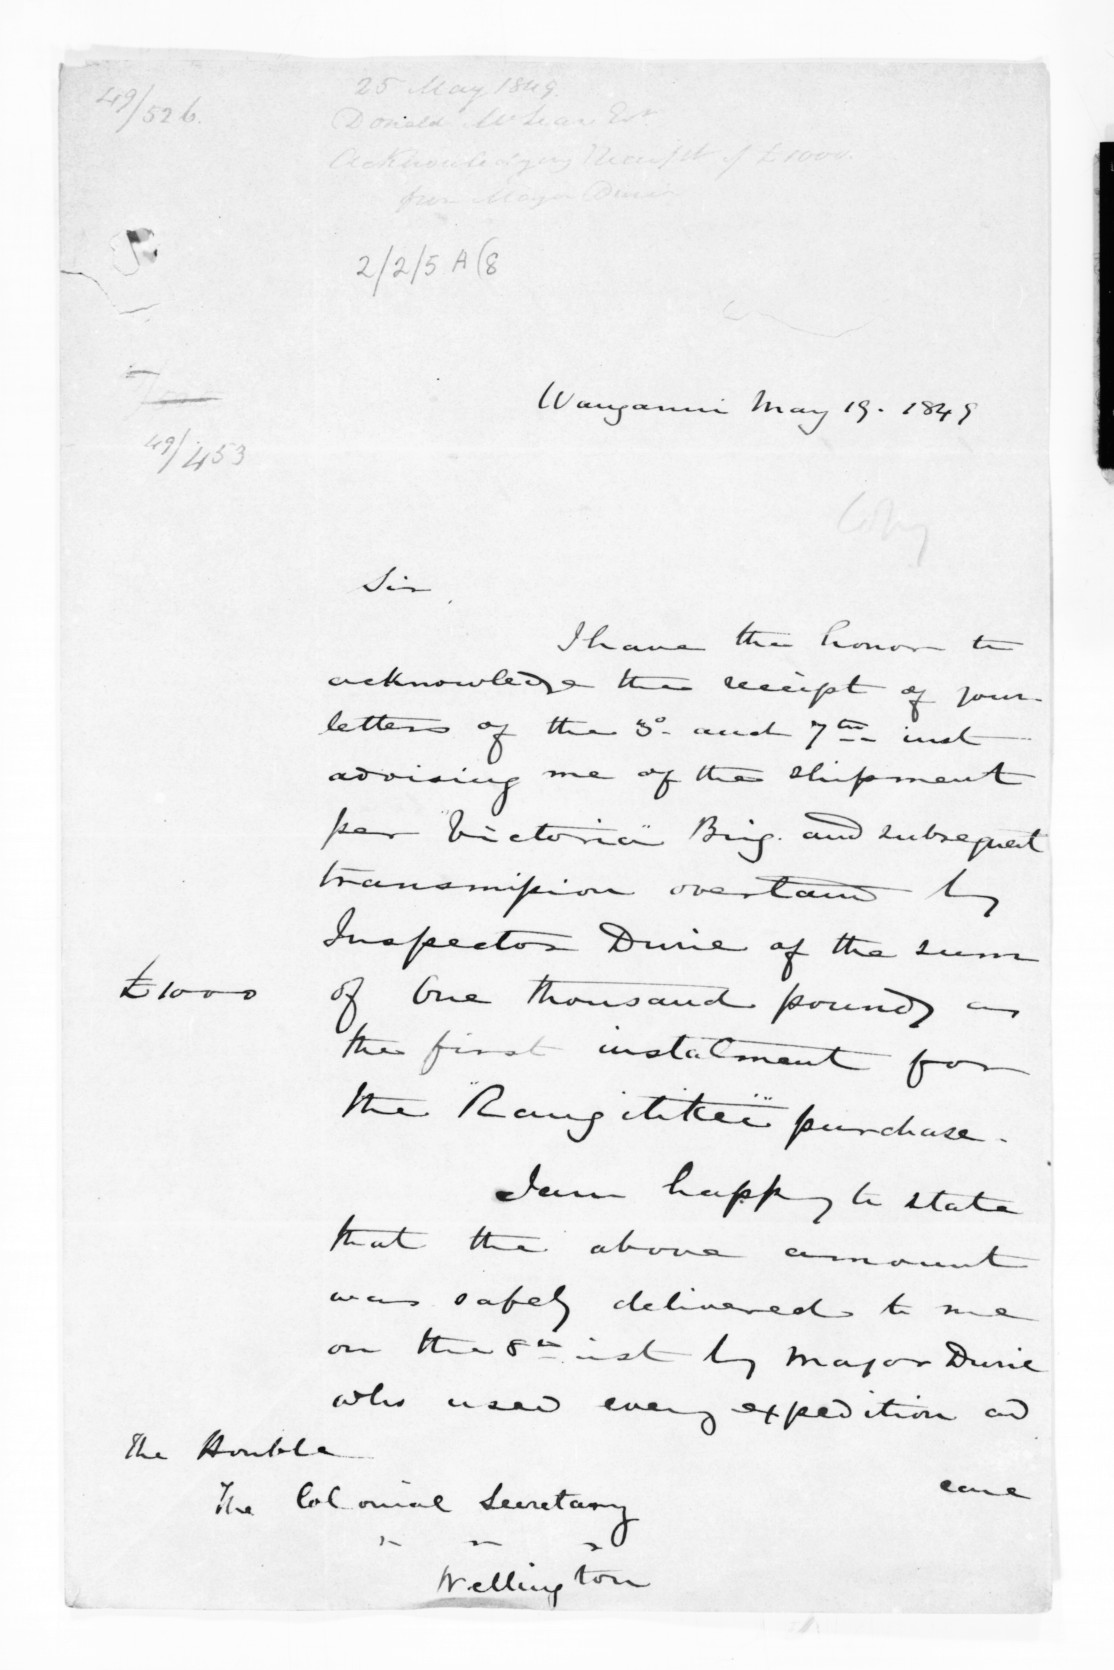 49/526.
25 May 1849.
Donald McLean Esqr
Acknowledging Receipt of £1000.
from Major Durie
2/2/5 A(8
49/453
Wanganui May 19. 1849
Copy
Sir
I have the honor to
acknowledge the receipt of your
letters of the 3d. and 7th inst
advising me of the shipment
per "Victoria" Brig. and subsequent
transmission overland by
Inspector Durie of the sum
£1000 of One thousand pounds as
the first instalment for
the "Rangitikei" purchase.
I am happy to state
that the above amount
was safely delivered to me
on the 8th inst by Major Durie
who used every expedition and
care
The Honble
The Colonial Secretary
" " "
Wellington